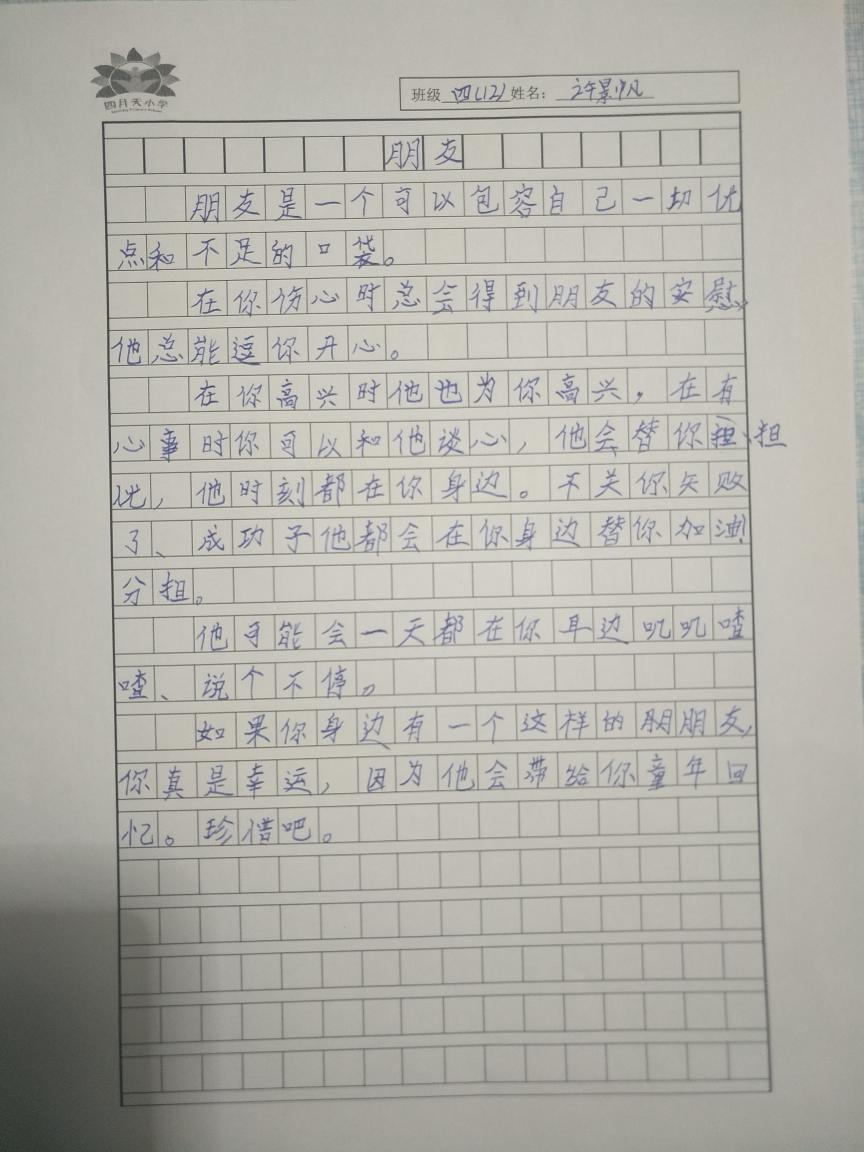 四月天小学
班级 四(12) 姓名: 许景凡
朋友
朋友是一个可以包容自己一切优
点和不足的口袋。
在你伤心时总会得到朋友的安慰,
他总能逗你开心。
在你高兴时他也为你高兴,在有
心事时你可以和他谈心,他会替你担
忧,他时刻都在你身边。不关你失败
了、成功子他都会在你身边替你加油
分担。
他可能会一天都在你耳边叽叽喳
喳、说个不停。
如果你身边有一个这样的朋朋友,
你真是幸运,因为他会带给你童年回
忆。珍惜吧。